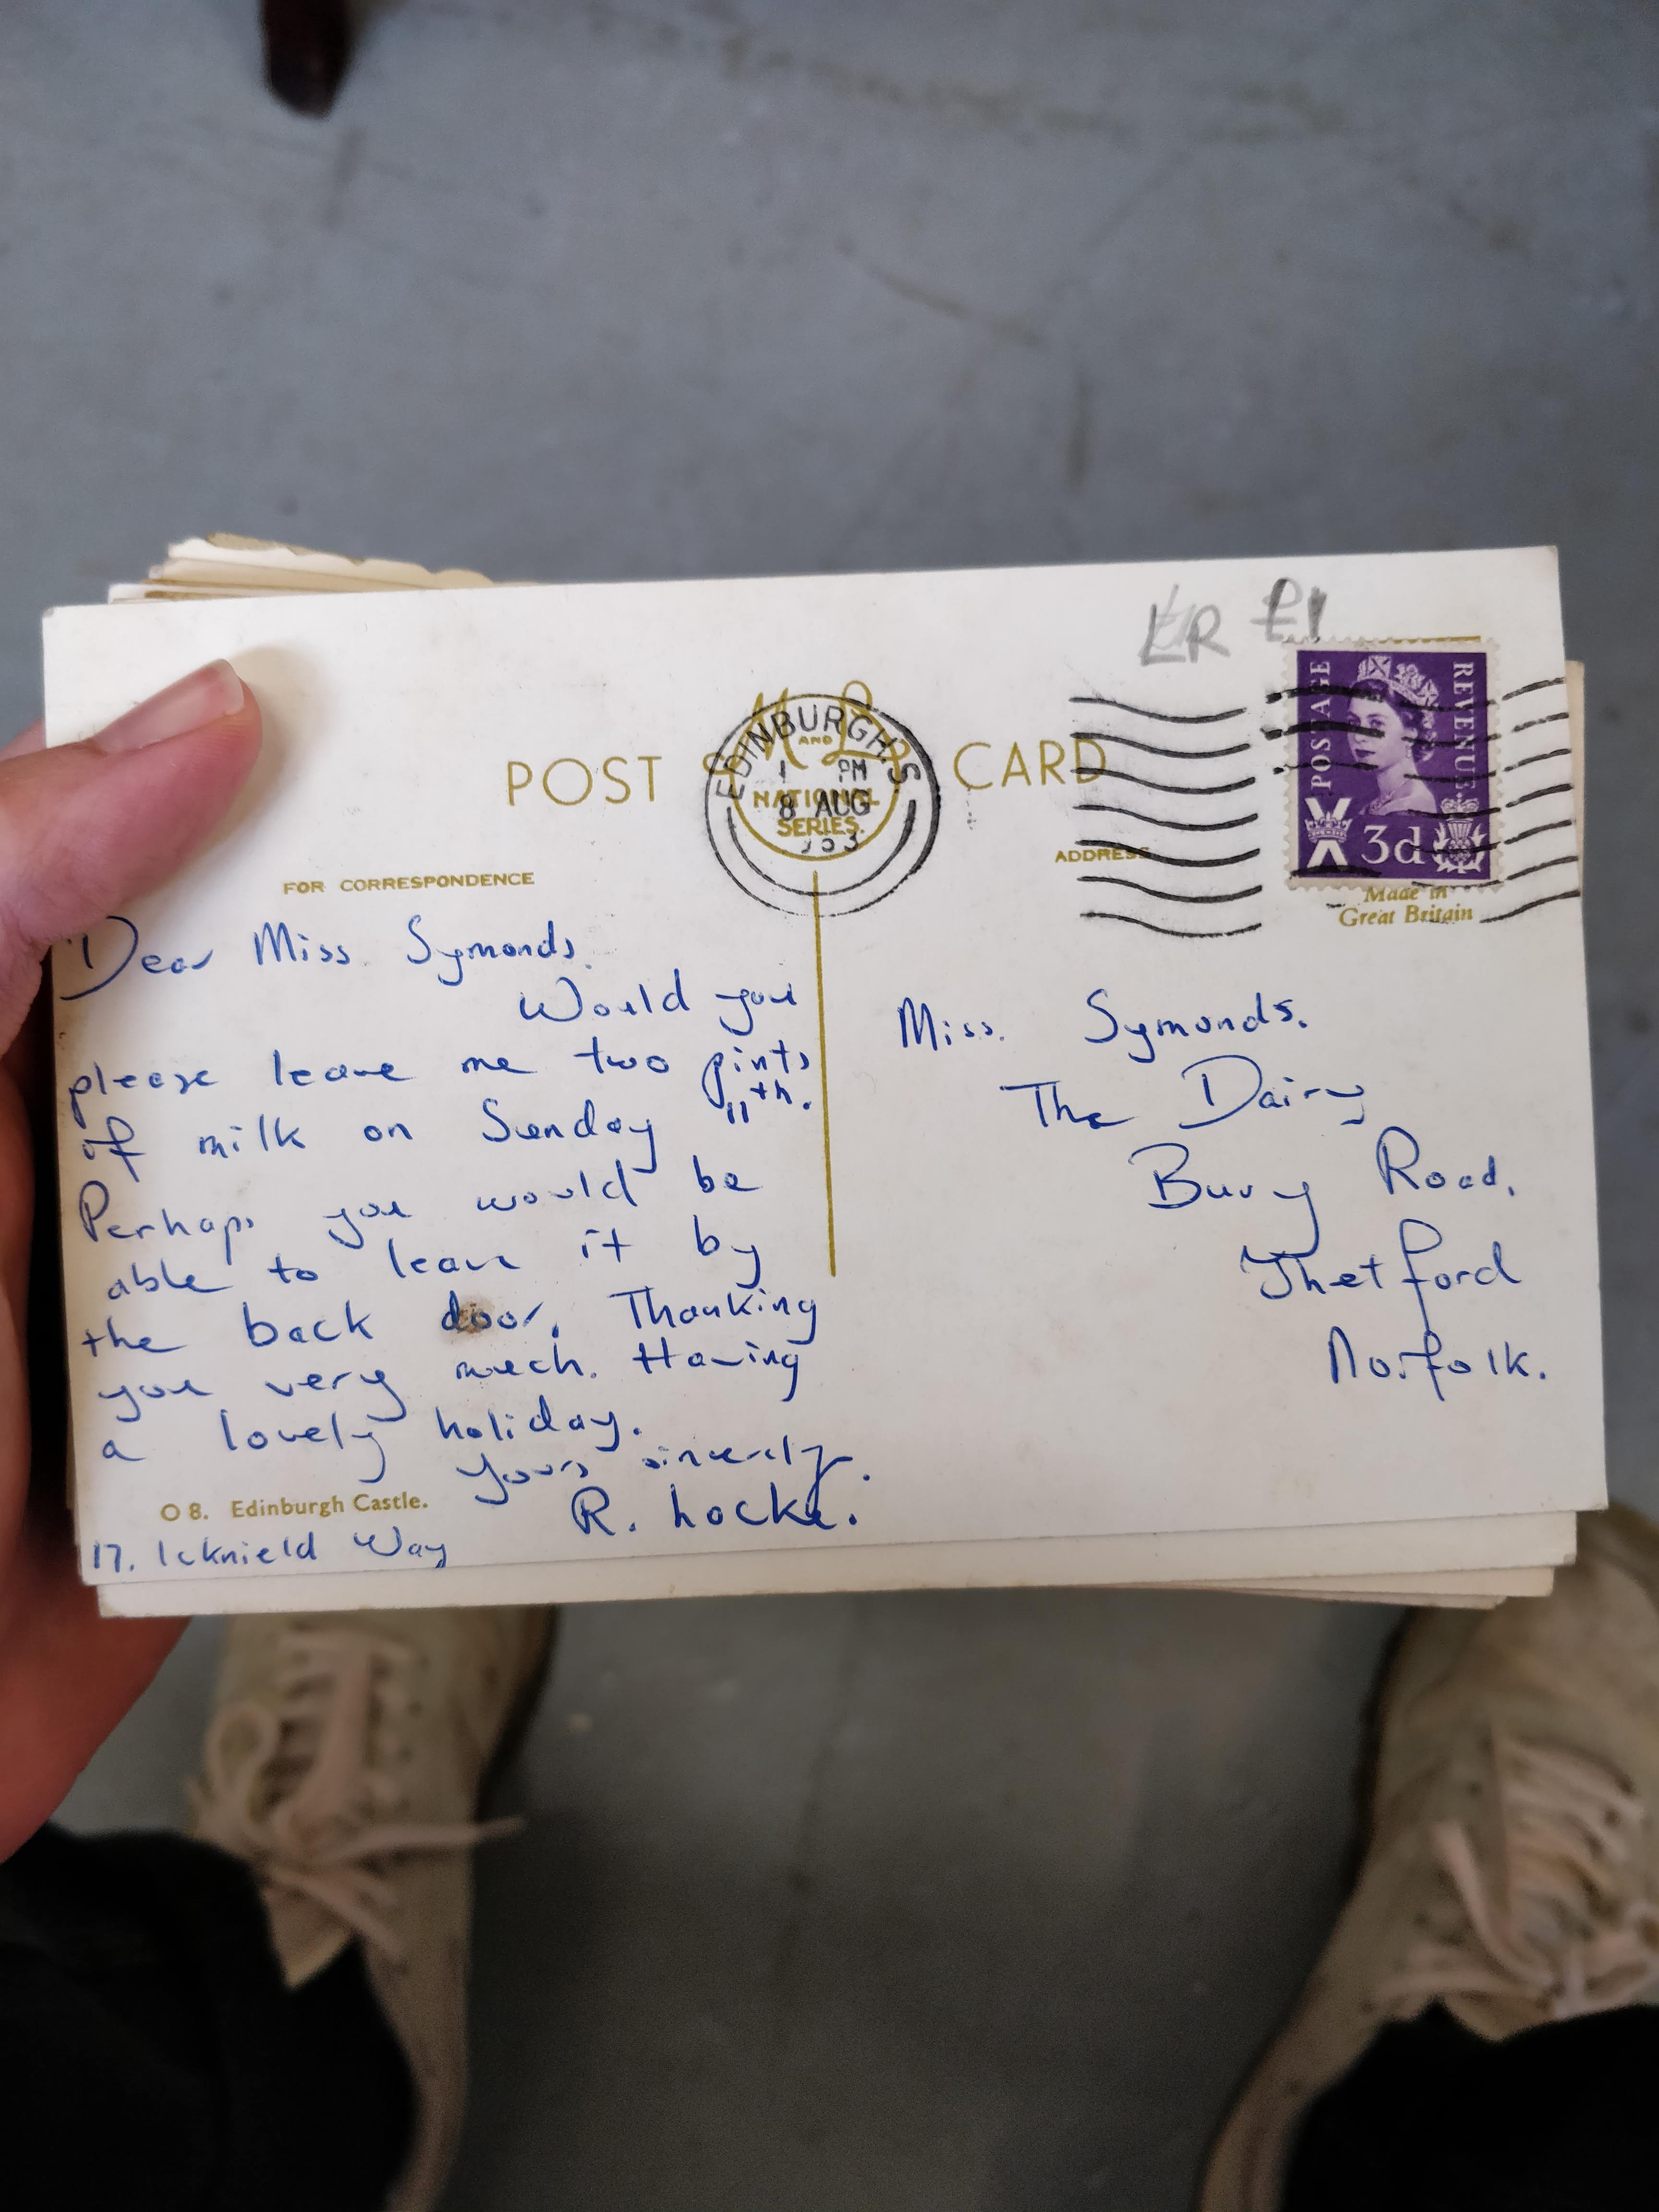 £R £1
POSTAGE REVENUE
3d
POST CARD
M AND L
NATIONAL
SERIES
EDINBURGH.S
1 PM
8 AUG
FOR CORRESPONDENCE
ADDRESS
Made in
Great Britain
Dear Miss. Symonds.
Would you
please leave me two pints
of milk on Sunday 11th.
Perhaps you would be
able to leave it by
the back door. Thanking
you very much. Having
a lovely holiday.
Yours sincerely.
R. Locke.
O 8. Edinburgh Castle.
17. Icknield Way
Miss. Symonds.
The Dairy
Bury Road.
Thetford
Norfolk.